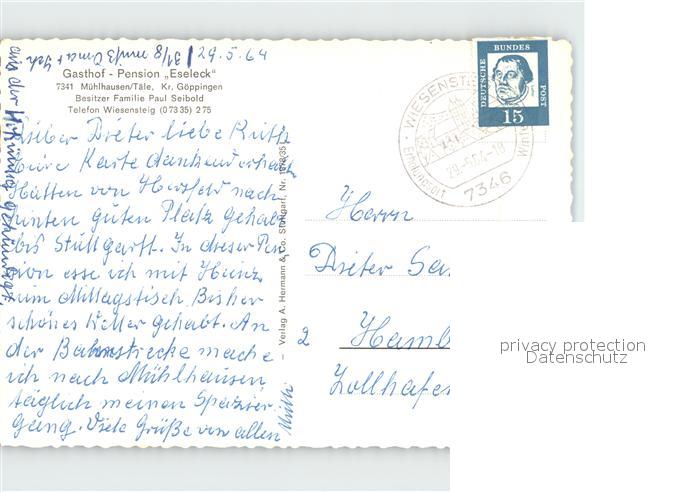 29.5.64
Gasthof - Pension „Eseleck"
7341 Mühlhausen/Täle, Kr. Göppingen
Besitzer Familie Paul Seibold
Telefon Wiesensteig (07335) 275
Lieber Dieter liebe Ruth
Eure Karte dankend erhal
Hatten von Hersfeld nach
hinten guten Platz gehabt
bis Stuttgart. In dieser Pen
sion esse ich mit Heinz
zum Mittagstisch Bisher
schönes Wetter gehabt. An
der Bahnstrecke mache
ich nach Mühlhausen
täglich meinen Spazier
gang. Viele Grüße von allen
Mutti
- Verlag A. Hermann & Co. Stuttgart, Nr.
DEUTSCHE BUNDES POST
15
WIESENSTEIG
Erholungsort
7346
Herrn
Dieter Sa
2 Hamb
Zollhafe
privacy protection
Datenschutz